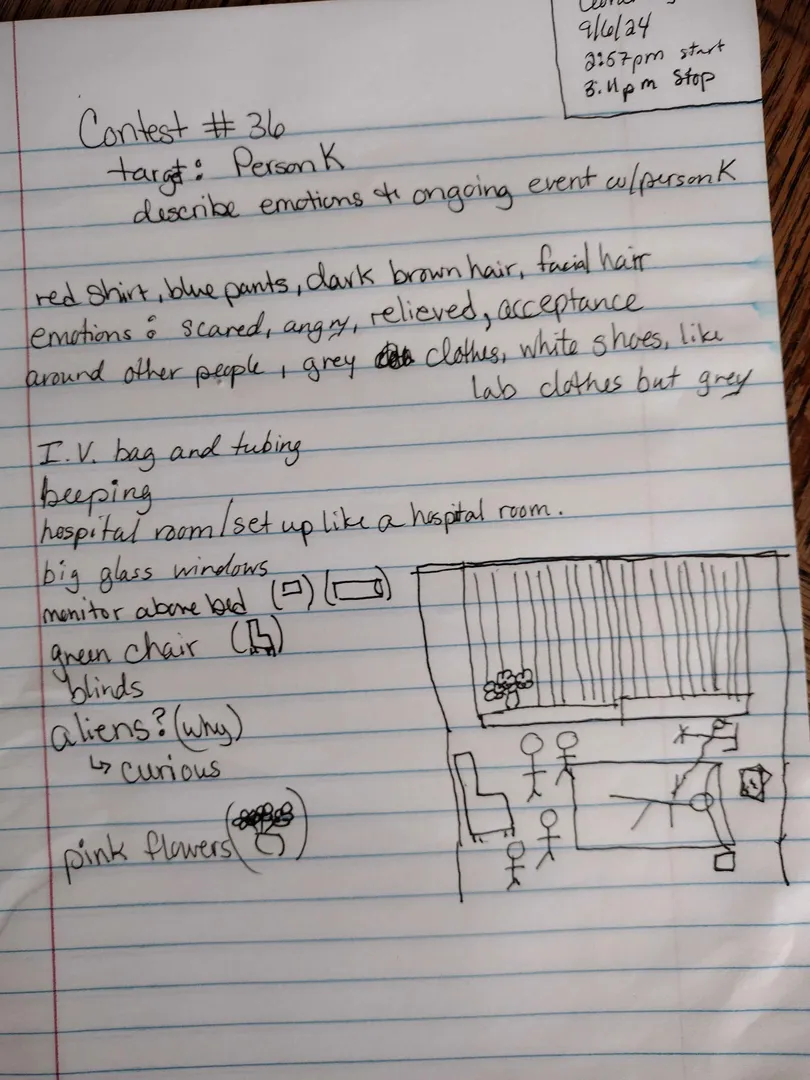 9/6/24
2:57pm start
3:11pm Stop
Contest # 36
targt: Person K
describe emotions & ongoing event w/person K
red shirt, blue pants, dark brown hair, facial hair
emotions: scared, angry, relieved, acceptance
around other people, grey clothes, white shoes, like
lab clothes but grey
I.V. bag and tubing
beeping
hospital room/set up like a hospital room.
big glass windows
monitor above bed ( ) ( )
green chair ( )
blinds
aliens? (why)
↳ curious
pink flowers ( )